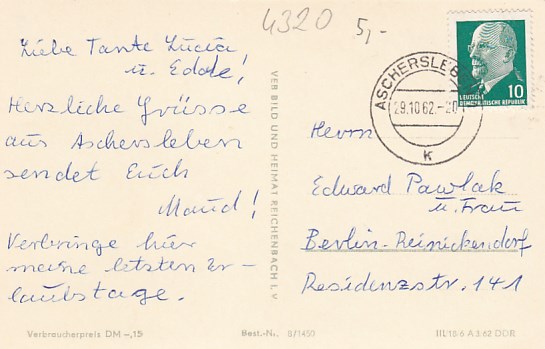 4320 5,-
Liebe Tante Lucia
u. Edde!
Herzliche Grüsse
aus Aschersleben
sendet Euch
Maud!
Verbringe hier
meine letzten Er-
laubstage.
Verbraucherpreis DM -,15
VEB BILD UND HEIMAT REICHENBACH I. V.
Best.-Nr. 8/1450
10
DEUTSCHE
DEMOKRATISCHE REPUBLIK
ASCHERSLEB
29.10.62.-20
K
Herrn
Edward Pawlak
u. Frau
Berlin-Reinickendorf
Residenzstr. 141
III/18-6 A 3/62 DDR